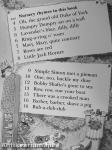 Nursery rhymes in this book
Oh, the grand old Duke of York
Humpty Dumpty sat on a wall
Lavender's blue, dilly, dilly
Ring-a-ring o' roses
Mary, Mary, quite contrary
Roses are red
Little Jack Horner
Simple Simon met a pieman
One, two, buckle my shoe
Bobby Shafto's gone to sea
Row, row, row your boat
There was a crooked man
Barber, barber, shave a pig
Rub-a-dub-dub